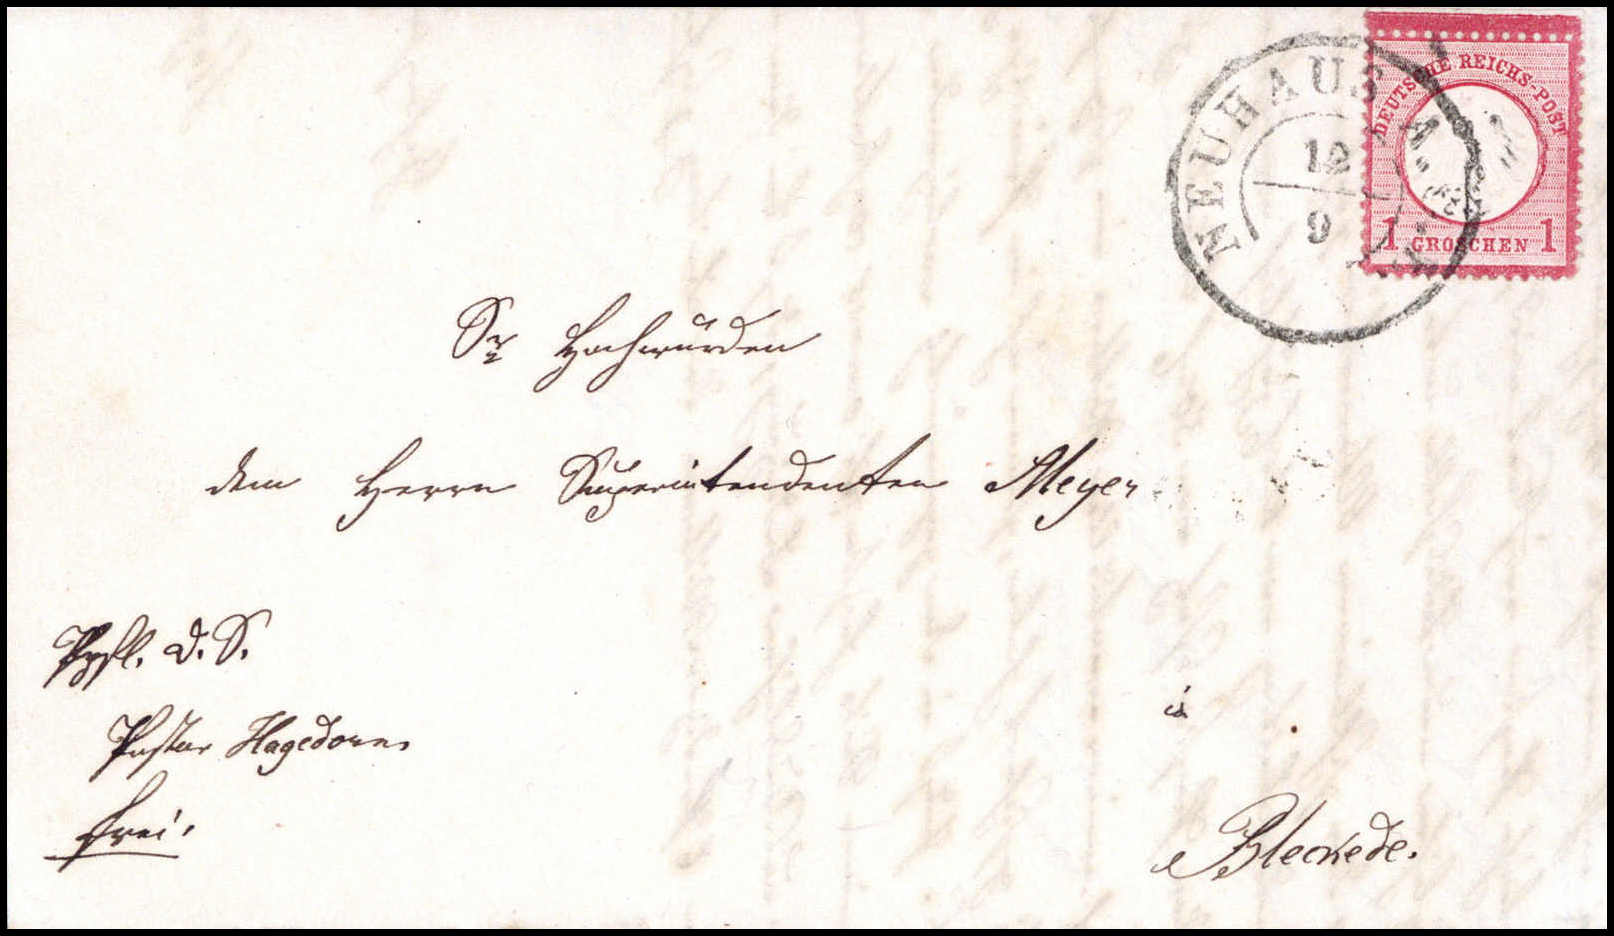 DEUTSCHE REICHS-POST
1 GROSCHEN 1
NEUHAUS
12
9
Sr Hochwürden
dem Herrn Superintendenten Meyer
in
Bleckede.
d. S.
Pastor Hagedorn
frei.